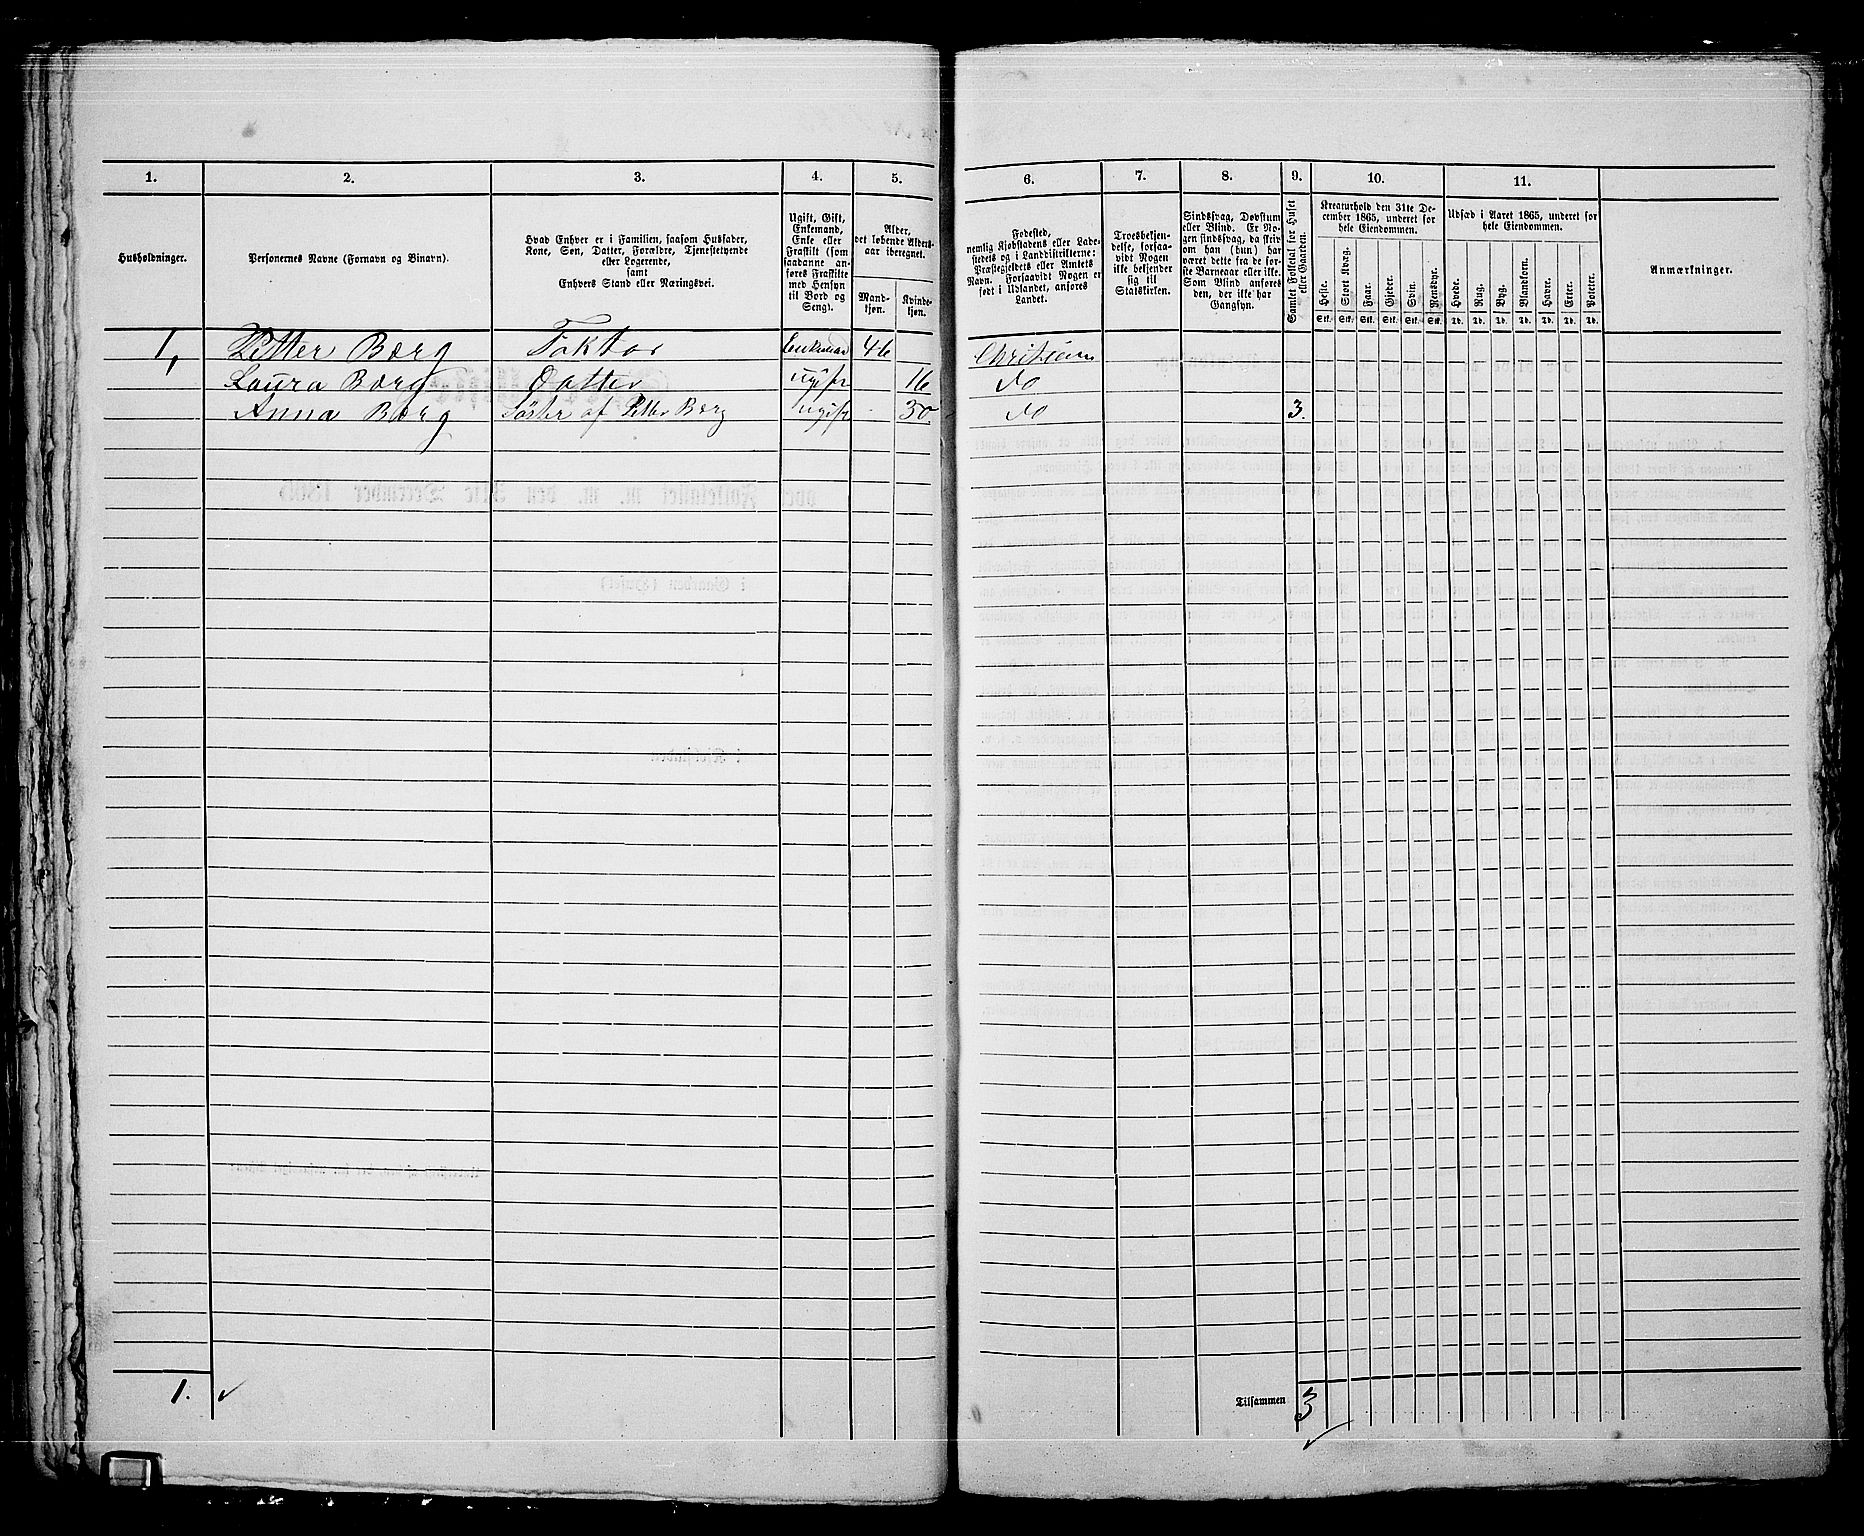 1. 2. 3. 4. 5. 6. 7. 8. 9. 10. 11.
Husholdninger.
Personernes Navne (Fornavn og Binavn).
Hvad Enhver er i Familien, saasom Husfader,
Kone, Søn, Datter, Forældre, Tjenestetyende
eller Logerende,
samt
Enhvers Stand eller Næringsvei.
Ugift, Gift,
Enkemand,
Enke eller
Fraskilt (som
saadanne an-
føres Fraskilte
med Hensyn
til Bord og
Seng).
Alder,
det løbende Alders-
aar iberegnet.
Mand-
kjøn.
Kvinde-
kjøn.
Fødested,
nemlig Kjøbstadens eller Lade-
stedets og i Landdistrikterne:
Præstegjeldets eller Amtets
Navn. Forsaavidt Nogen er
født i Udlandet, anføres
Landet.
Troesbekjen-
delse, forsaa-
vidt Nogen
ikke bekjender
sig til
Statskirken.
Sindssvag, Døvstum
eller Blind. Er No-
gen sindssvag, da skriv
om han (hun) har
været dette fra de før-
ste Barneaar eller ikke.
Som Blind anføres
den, der ikke har
Gangsyn.
Samlet Folketal for Huset
eller Gaarden.
Kreaturhold den 31te De-
cember 1865, underet for
hele Eiendommen.
Heste. Stort Kvæg. Faar. Gjeder. Svin. Rensdyr.
Stk. Stk. Stk. Stk. Stk. Stk.
Udsæd i Aaret 1865, underet for
hele Eiendommen.
Hvede. Rug. Byg. Blandkorn. Havre. Erter. Poteter.
Td. Td. Td. Td. Td. Td. Td.
Anmærkninger.
1, Petter Borg Faktor Enkemand 46 Christiania
Laura Borg Datter ugift 16 do
Anna Borg Søster af Petter Borg ugift 30 do 3.
1. ✓ Tilsammen 3 ✓